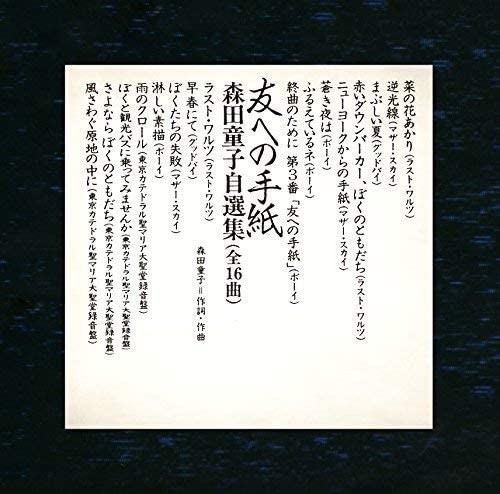 菜の花あかり(ラスト・ワルツ)
逆光線(マザー・スカイ)
まぶしい夏(グッドバイ)
赤いダウンパーカー、ぼくのともだち(ラスト・ワルツ)
ニューヨークからの手紙(マザー・スカイ)
蒼き夜は(ボーイ)
ふるえているネ(ボーイ)
終曲のために 第3番「友への手紙」(ボーイ)
友への手紙
森田童子自選集(全16曲)
森田童子=作詞・作曲
ラスト・ワルツ(ラスト・ワルツ)
早春にて(グッドバイ)
ぼくたちの失敗(マザー・スカイ)
淋しい素描(ボーイ)
雨のクロール(東京カテドラル聖マリア大聖堂録音盤)
ぼくと観光バスに乗ってみませんか(東京カテドラル聖マリア大聖堂録音盤)
さよなら ぼくのともだち(東京カテドラル聖マリア大聖堂録音盤)
風さわぐ原地の中に(東京カテドラル聖マリア大聖堂録音盤)